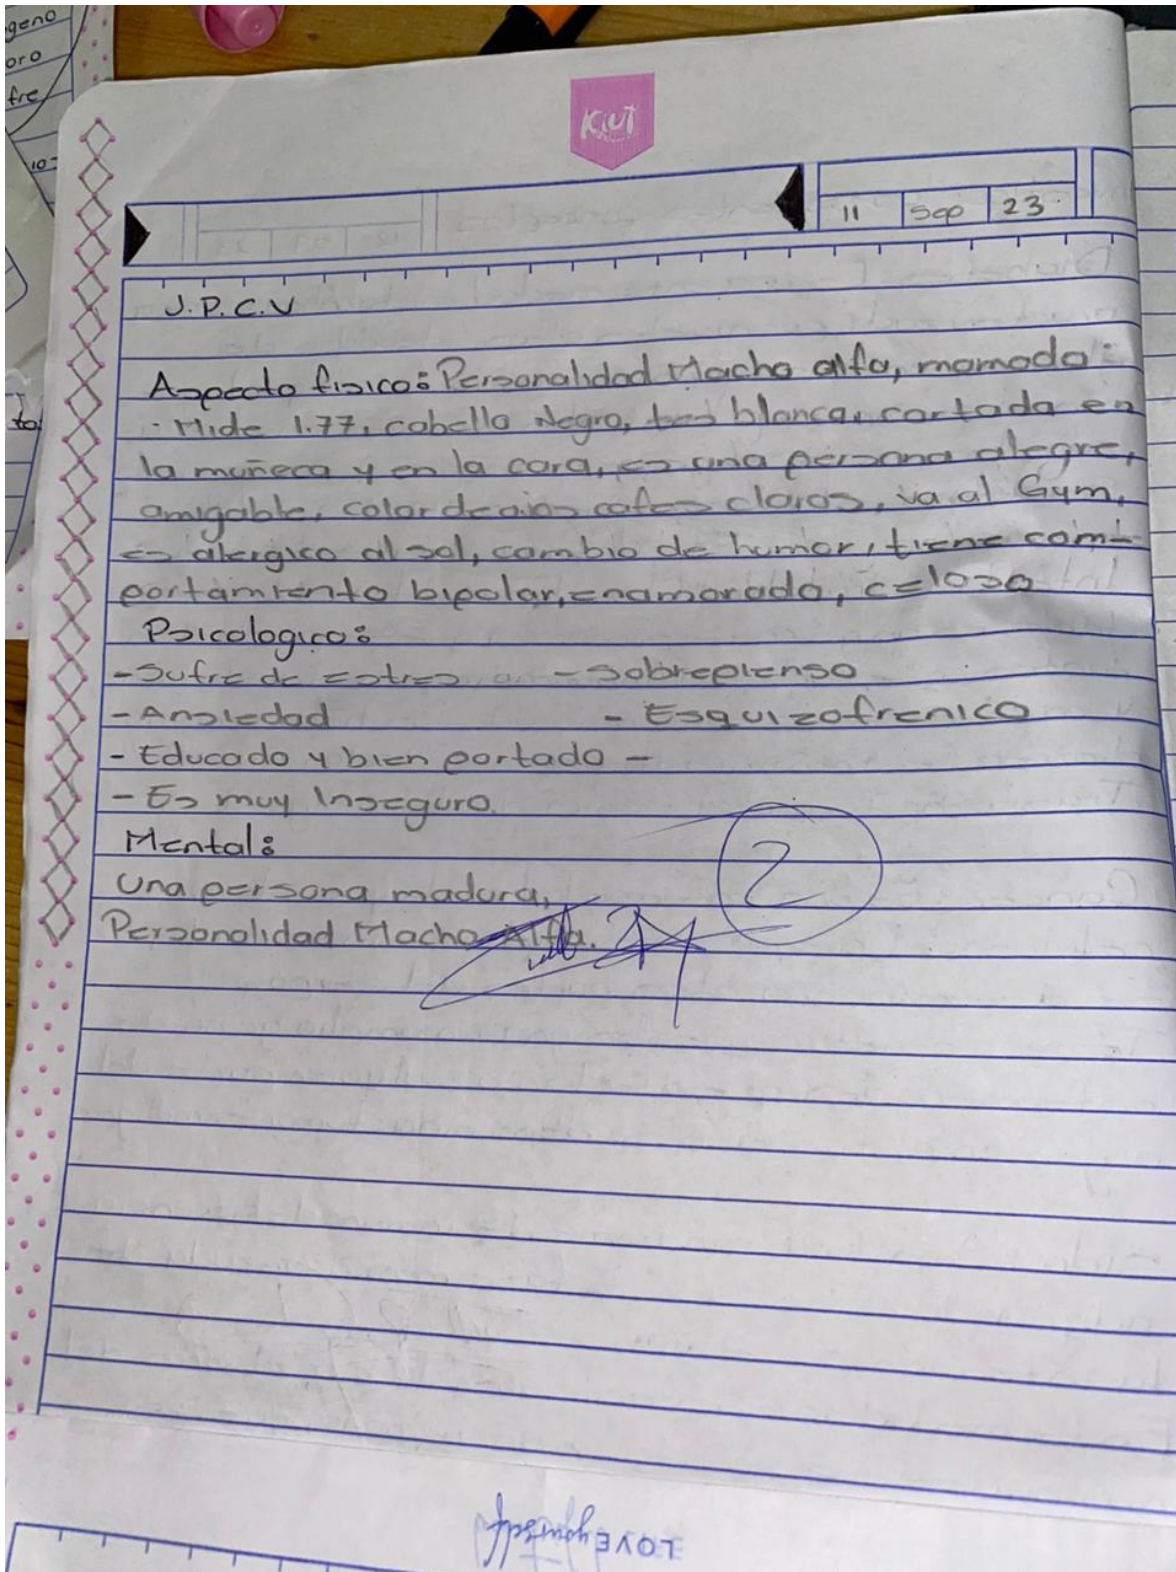 geno
oro
fre
10-
to
KIUT
11 Sep 23
J.P.C.V
Aspecto fisico: Personalidad Macho alfa, mamado
- Mide 1.77, cabello Negro, tes blanca, cortada en
la muñeca y en la cara, es una persona alegre,
amigable, color de ojos cafes claros, va al Gym,
es alergico al sol, cambio de humor, tiene com-
portamiento bipolar, enamorado, celoso
Psicologico:
- Sufre de estres - Sobrepienso
- Ansiedad - Esquizofrenico
- Educado y bien portado -
- Es muy Inseguro.
Mental:
Una persona madura,
Personalidad Macho Alfa.
2
LOVE yourself